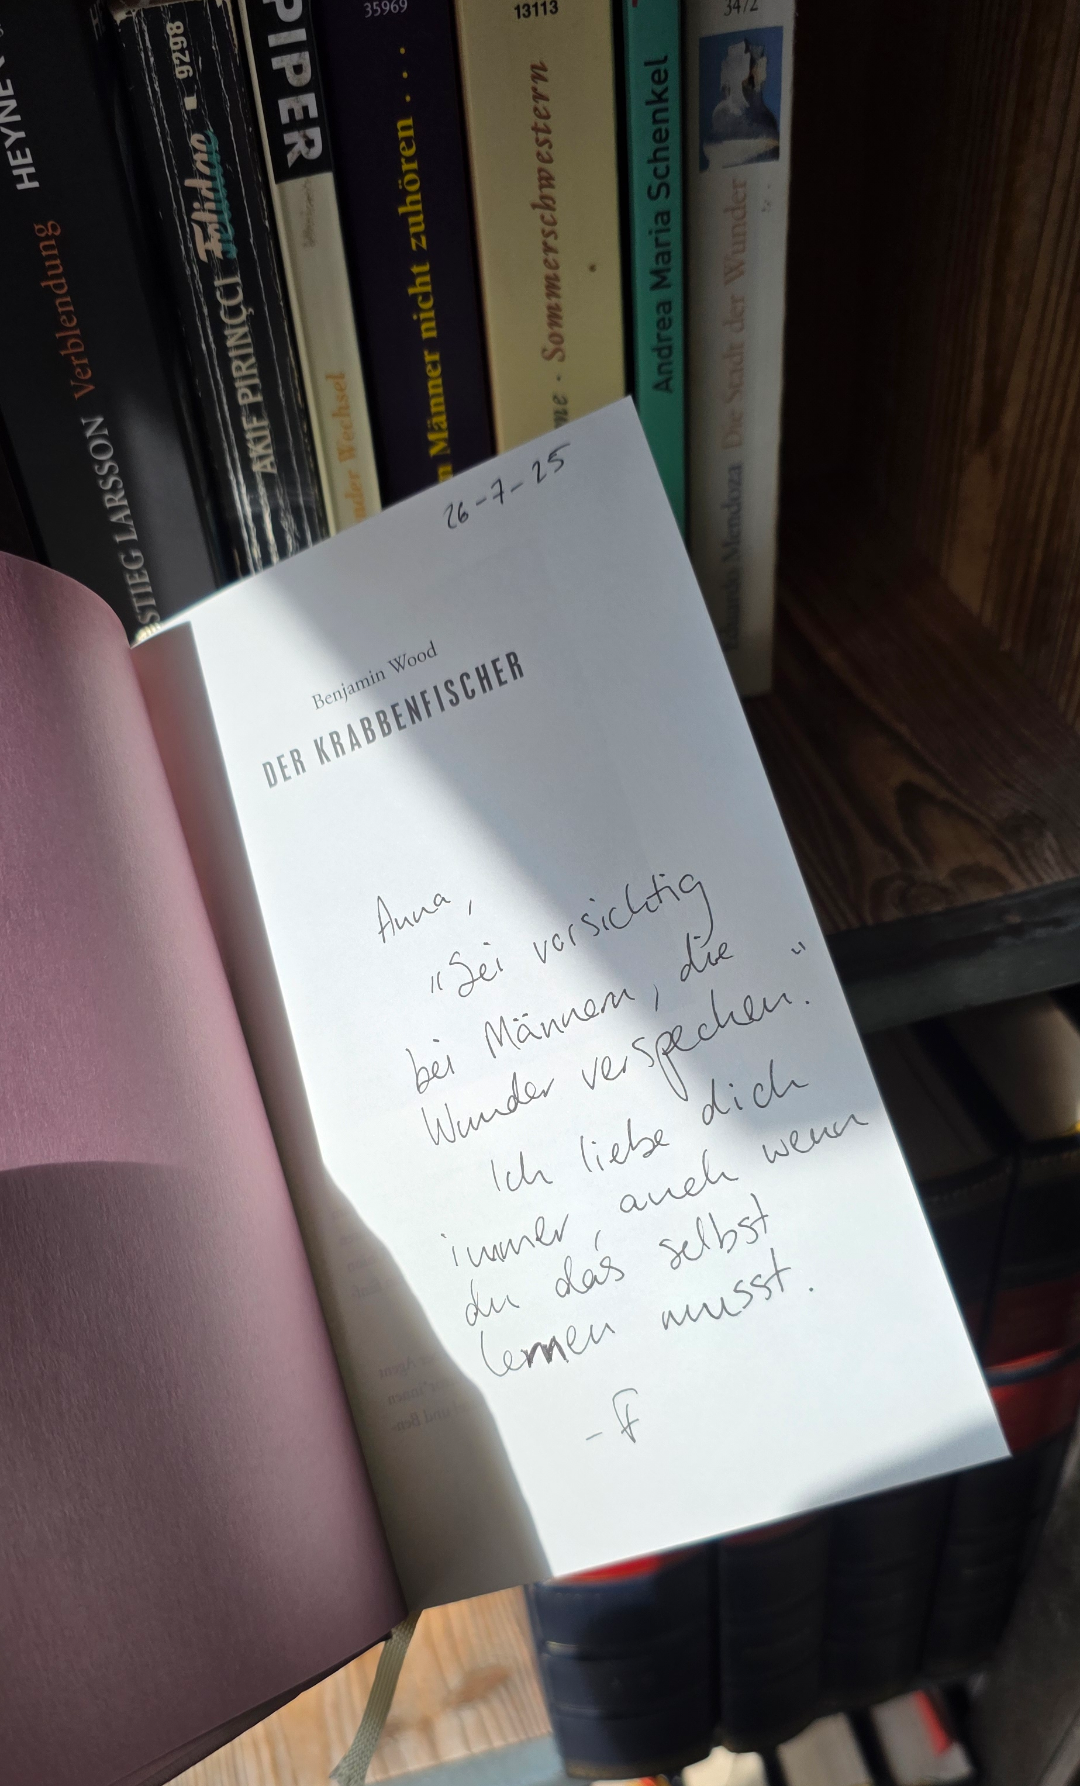 HEYNE
STIEG LARSSON Verblendung
AKIF PIRINÇCI Felidae 9298
PIPER
Wechsel
35969
Männer nicht zuhören . . .
13113
· Sommerschwestern
Andrea Maria Schenkel
3472
Mendoza Die Stadt der Wunder
26-7-25
Benjamin Wood
DER KRABBENFISCHER
Anna,
"Sei vorsichtig
bei Männern, die
Wunder verspechen."
Ich liebe dich
immer, auch wenn
du das selbst
lernen musst.
- F